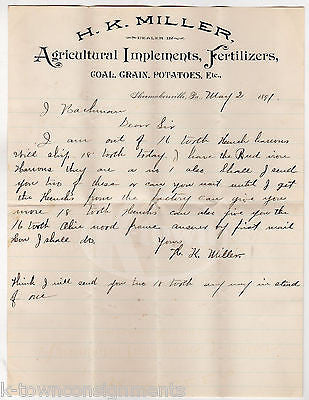 H. K. MILLER,
DEALER IN
Agricultural Implements, Fertilizers,
COAL, GRAIN, POTATOES, Etc.,
Shoemakersville, Pa. May 2 1891
J Bachman
Dear Sir
I am out of 16 tooth Hench harrows
will ship 18 tooth today. I have the Reed wire
Harrows they are a no 1 also Shall I send
you two of these or can you wait until I get
the Hench's from the factory can give you
more 18 tooth Hench's can also give you the
16 tooth wood frame answer by first mail
how I shall do.
Yours
H. K. Miller
think I will send you two 18 tooth any way in stead
of one
k-townconsignments